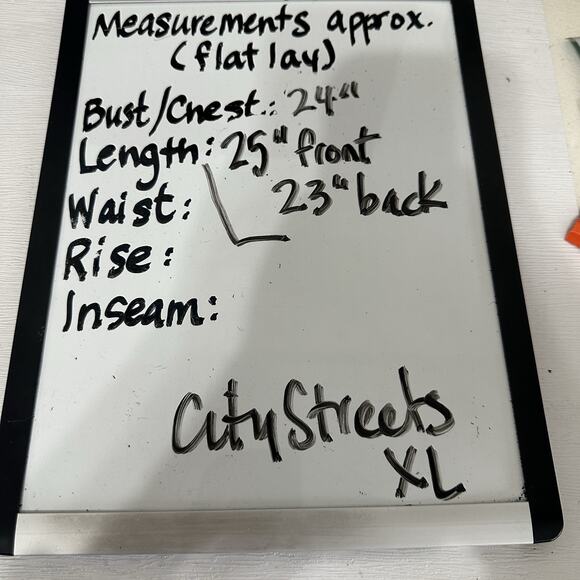 Measurements approx.
(flat lay)
Bust/Chest: 24"
Length: 25" front
23" back
Waist:
Rise:
Inseam:
City Streets
XL